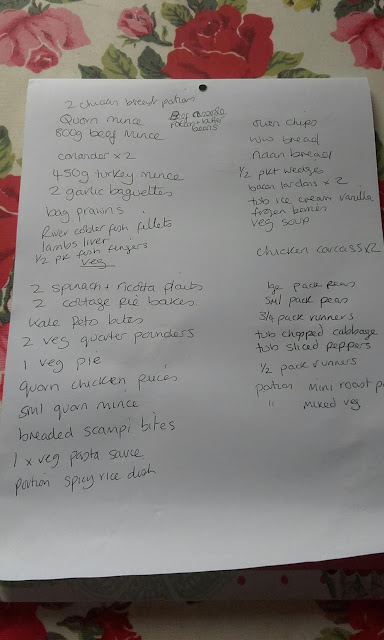 2 chicken breast portions
Quorn mince
800g beef mince
coriander x 2
450g turkey mince
2 garlic baguettes
bag prawns
River cobler fish fillets
lambs liver
1/2 pk fish fingers
veg
2 spinach + ricotta plaits
2 cottage pie bakes
kale feta bites
2 veg quarter pounders
1 veg pie
quorn chicken pieces
sml quorn mince
breaded scampi bites
1 x veg pasta sauce
portion spicy rice dish
beans
oven chips
ww bread
naan bread
1/2 pkt wedges
bacon lardons x 2
tub ice cream vanilla
frozen berries
veg soup
chicken carcass x2
lge pack peas
sml pack peas
3/4 pack runners
tub chopped cabbage
tub sliced peppers
1/2 pack runners
portion mini roast p
" mixed veg